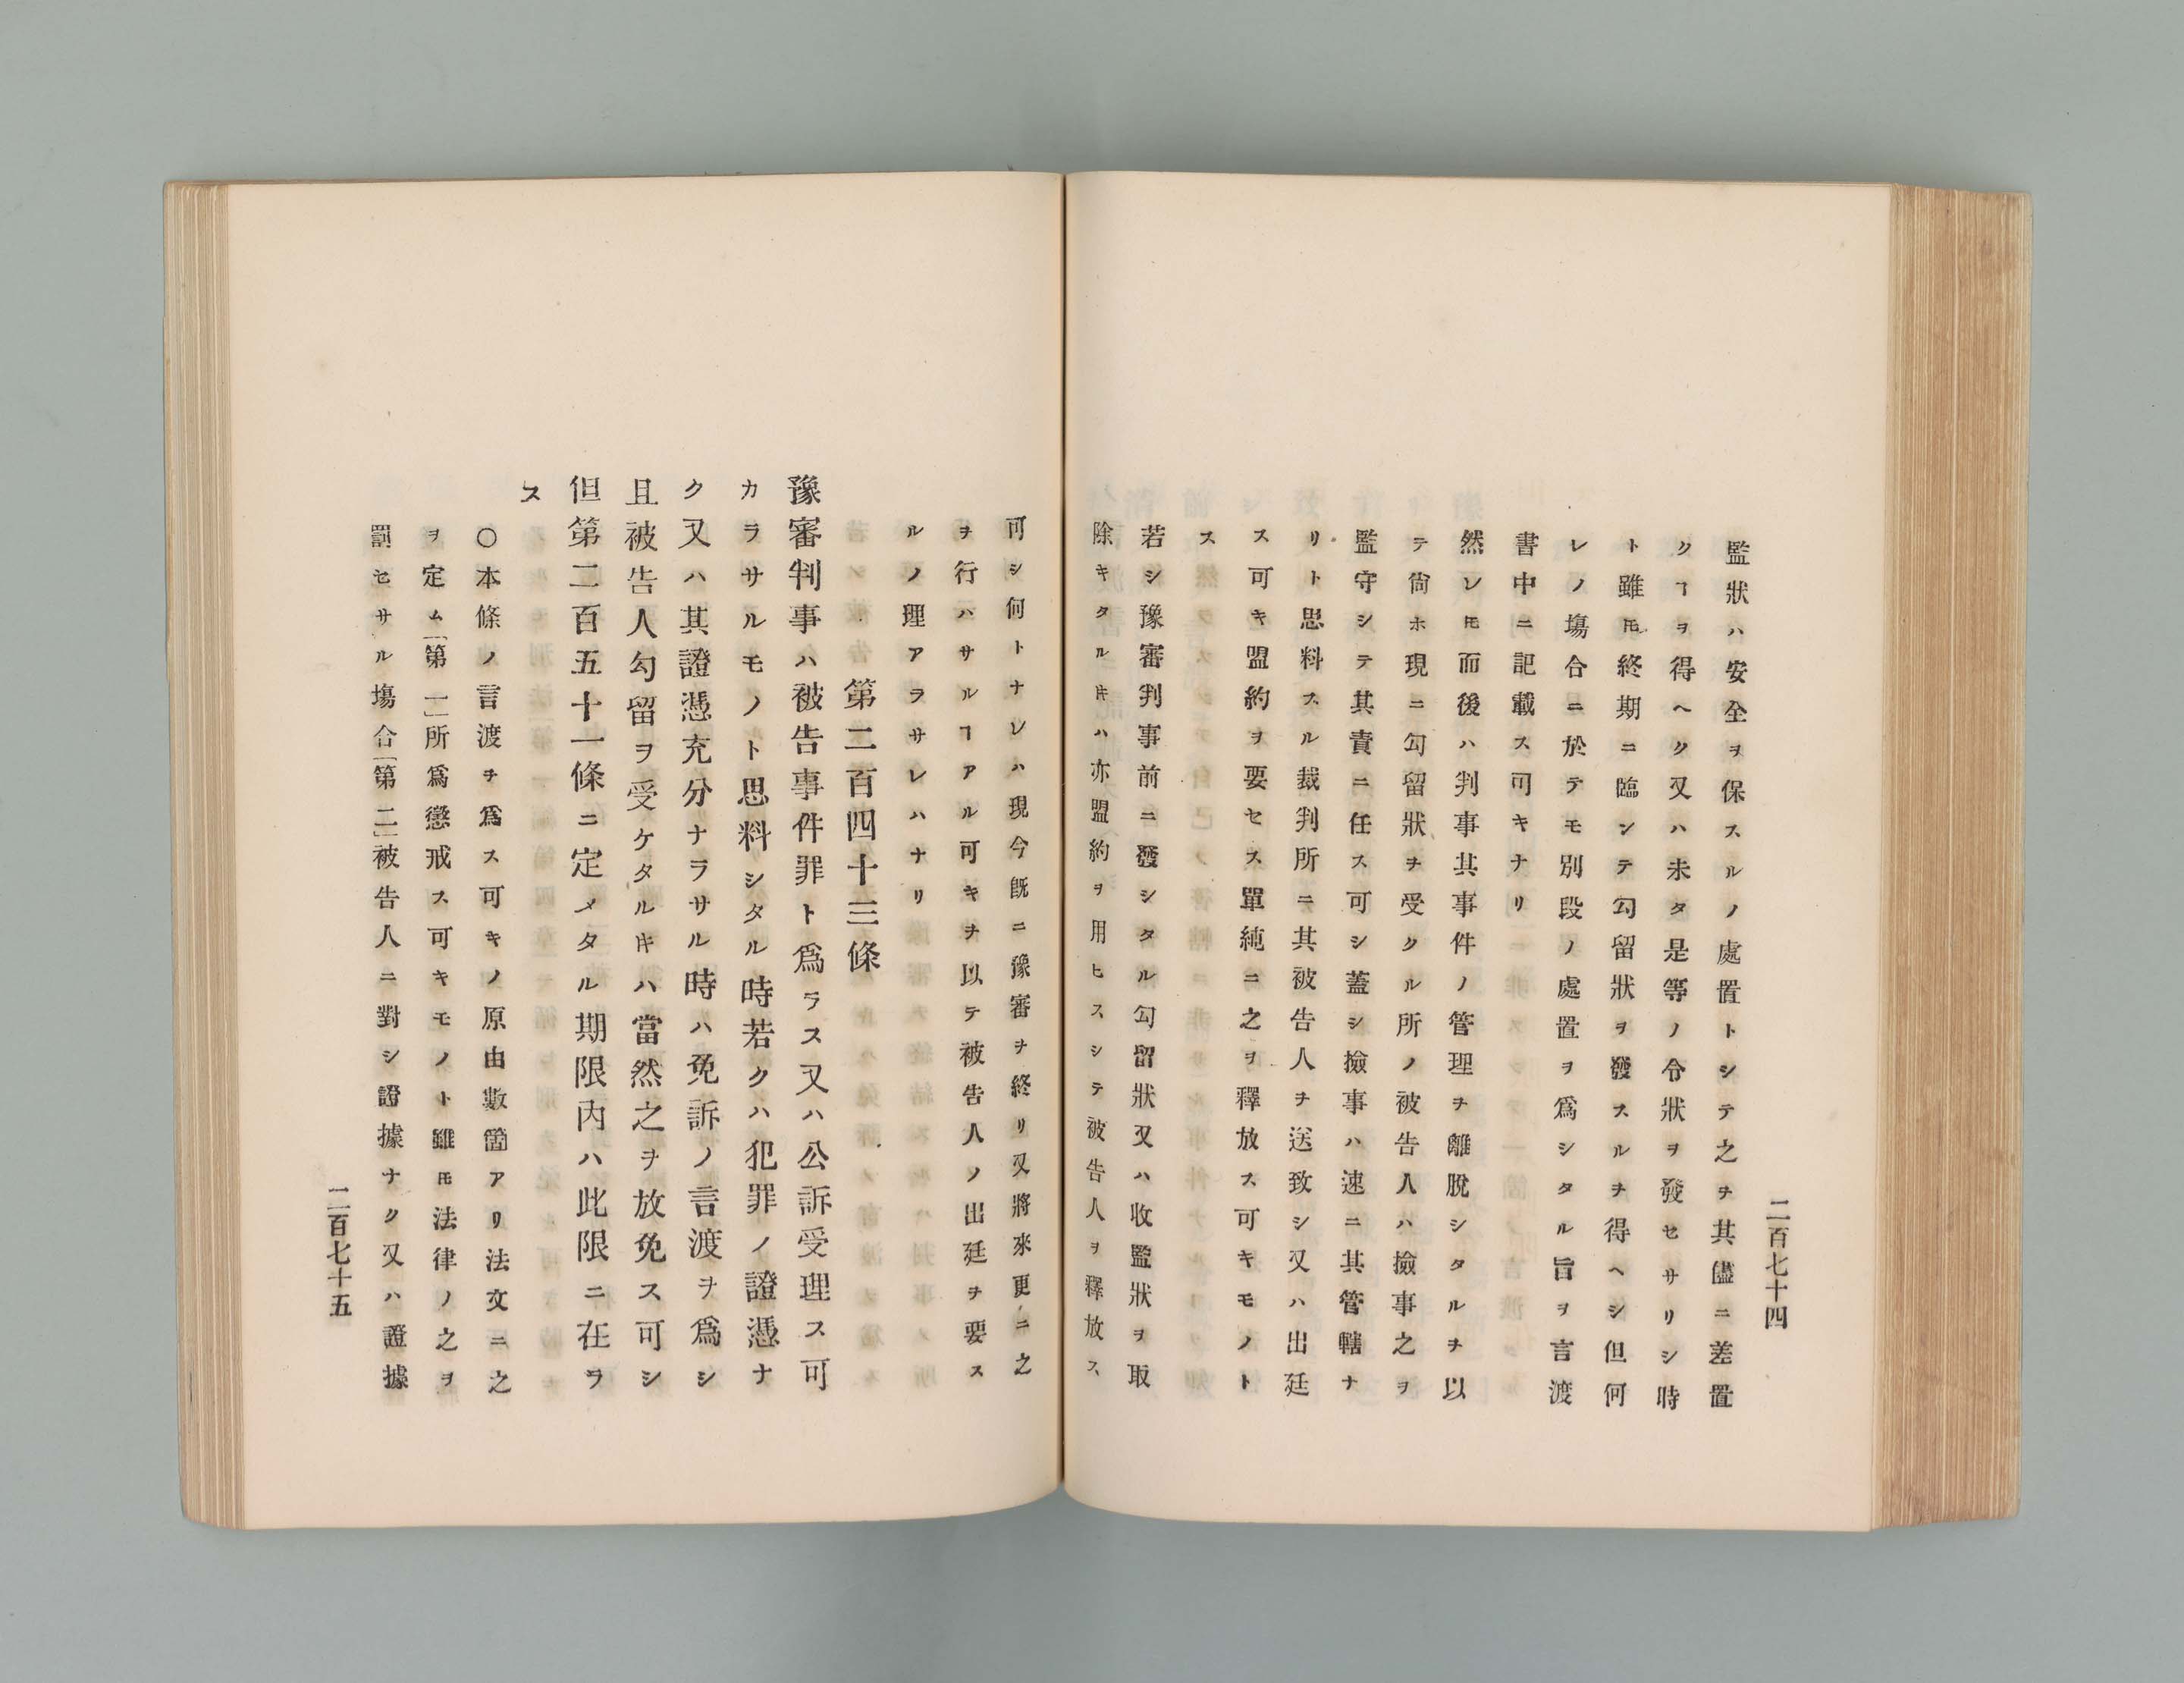 二百七十四
監狀ハ安全ヲ保スルノ處置トシテ之ヲ其儘ニ差置
クヿヲ得ヘク又ハ未タ是等ノ令狀ヲ發セサリシ時
ト雖𪜈終期ニ臨ンテ勾留狀ヲ發スルヲ得ヘシ但何
レノ塲合ニ於テモ別段ノ處置ヲ爲シタル旨ヲ言渡
書中ニ記載ス可キナリ
然レ𪜈而後ハ判事其事件ノ管理ヲ離脫シタルヲ以
テ尙ホ現ニ勾留狀ヲ受クル所ノ被告人ハ撿事之ヲ
監守シテ其責ニ任ス可シ蓋シ撿事ハ速ニ其管轄ナ
リト思料スル裁判所ニ其被告人ヲ送致シ又ハ出廷
ス可キ盟約ヲ要セス單純ニ之ヲ釋放ス可キモノト
ス
若シ豫審判事前ニ發シタル勾留狀又ハ收監狀ヲ取
除キタル𪜈ハ亦盟約ヲ用ヒスシテ被告人ヲ釋放ス
可シ何トナレハ現今旣ニ豫審ヲ終リ又將來更ニ之
ヲ行ハサルヿアル可キヲ以テ被告人ノ出廷ヲ要ス
ルノ理アラサレハナリ
第二百四十三條
豫審判事ハ被告事件罪ト爲ラス又ハ公訴受理ス可
カラサルモノト思料シタル時若クハ犯罪ノ證憑ナ
ク又ハ其證憑充分ナラサル時ハ免訴ノ言渡ヲ爲シ
且被告人勾留ヲ受ケタル𪜈ハ當然之ヲ放免ス可シ
但第二百五十一條ニ定メタル期限內ハ此限ニ在ラ
ス
〇本條ノ言渡ヲ爲ス可キノ原由數箇アリ法文ニ之
ヲ定ム「第一」所爲懲戒ス可キモノト雖𪜈法律ノ之ヲ
罰セサル塲合「第二」被告人ニ對シ證據ナク又ハ證據
二百七十五